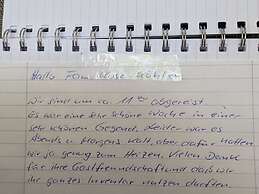 Hallo Fam. Rose Köhler
Wir sind um ca. 11 Uhr abgereist
Es war eine sehr schöne Woche in einer
sehr schönen Gegend. Leider war es
Abends u. Morgens kalt, aber dafür hatten
wir ja genug zum Heizen. Vielen Dank
für ihre Gastfreundschaft und daß wir
ihr ganzes Inventar nutzen durften.